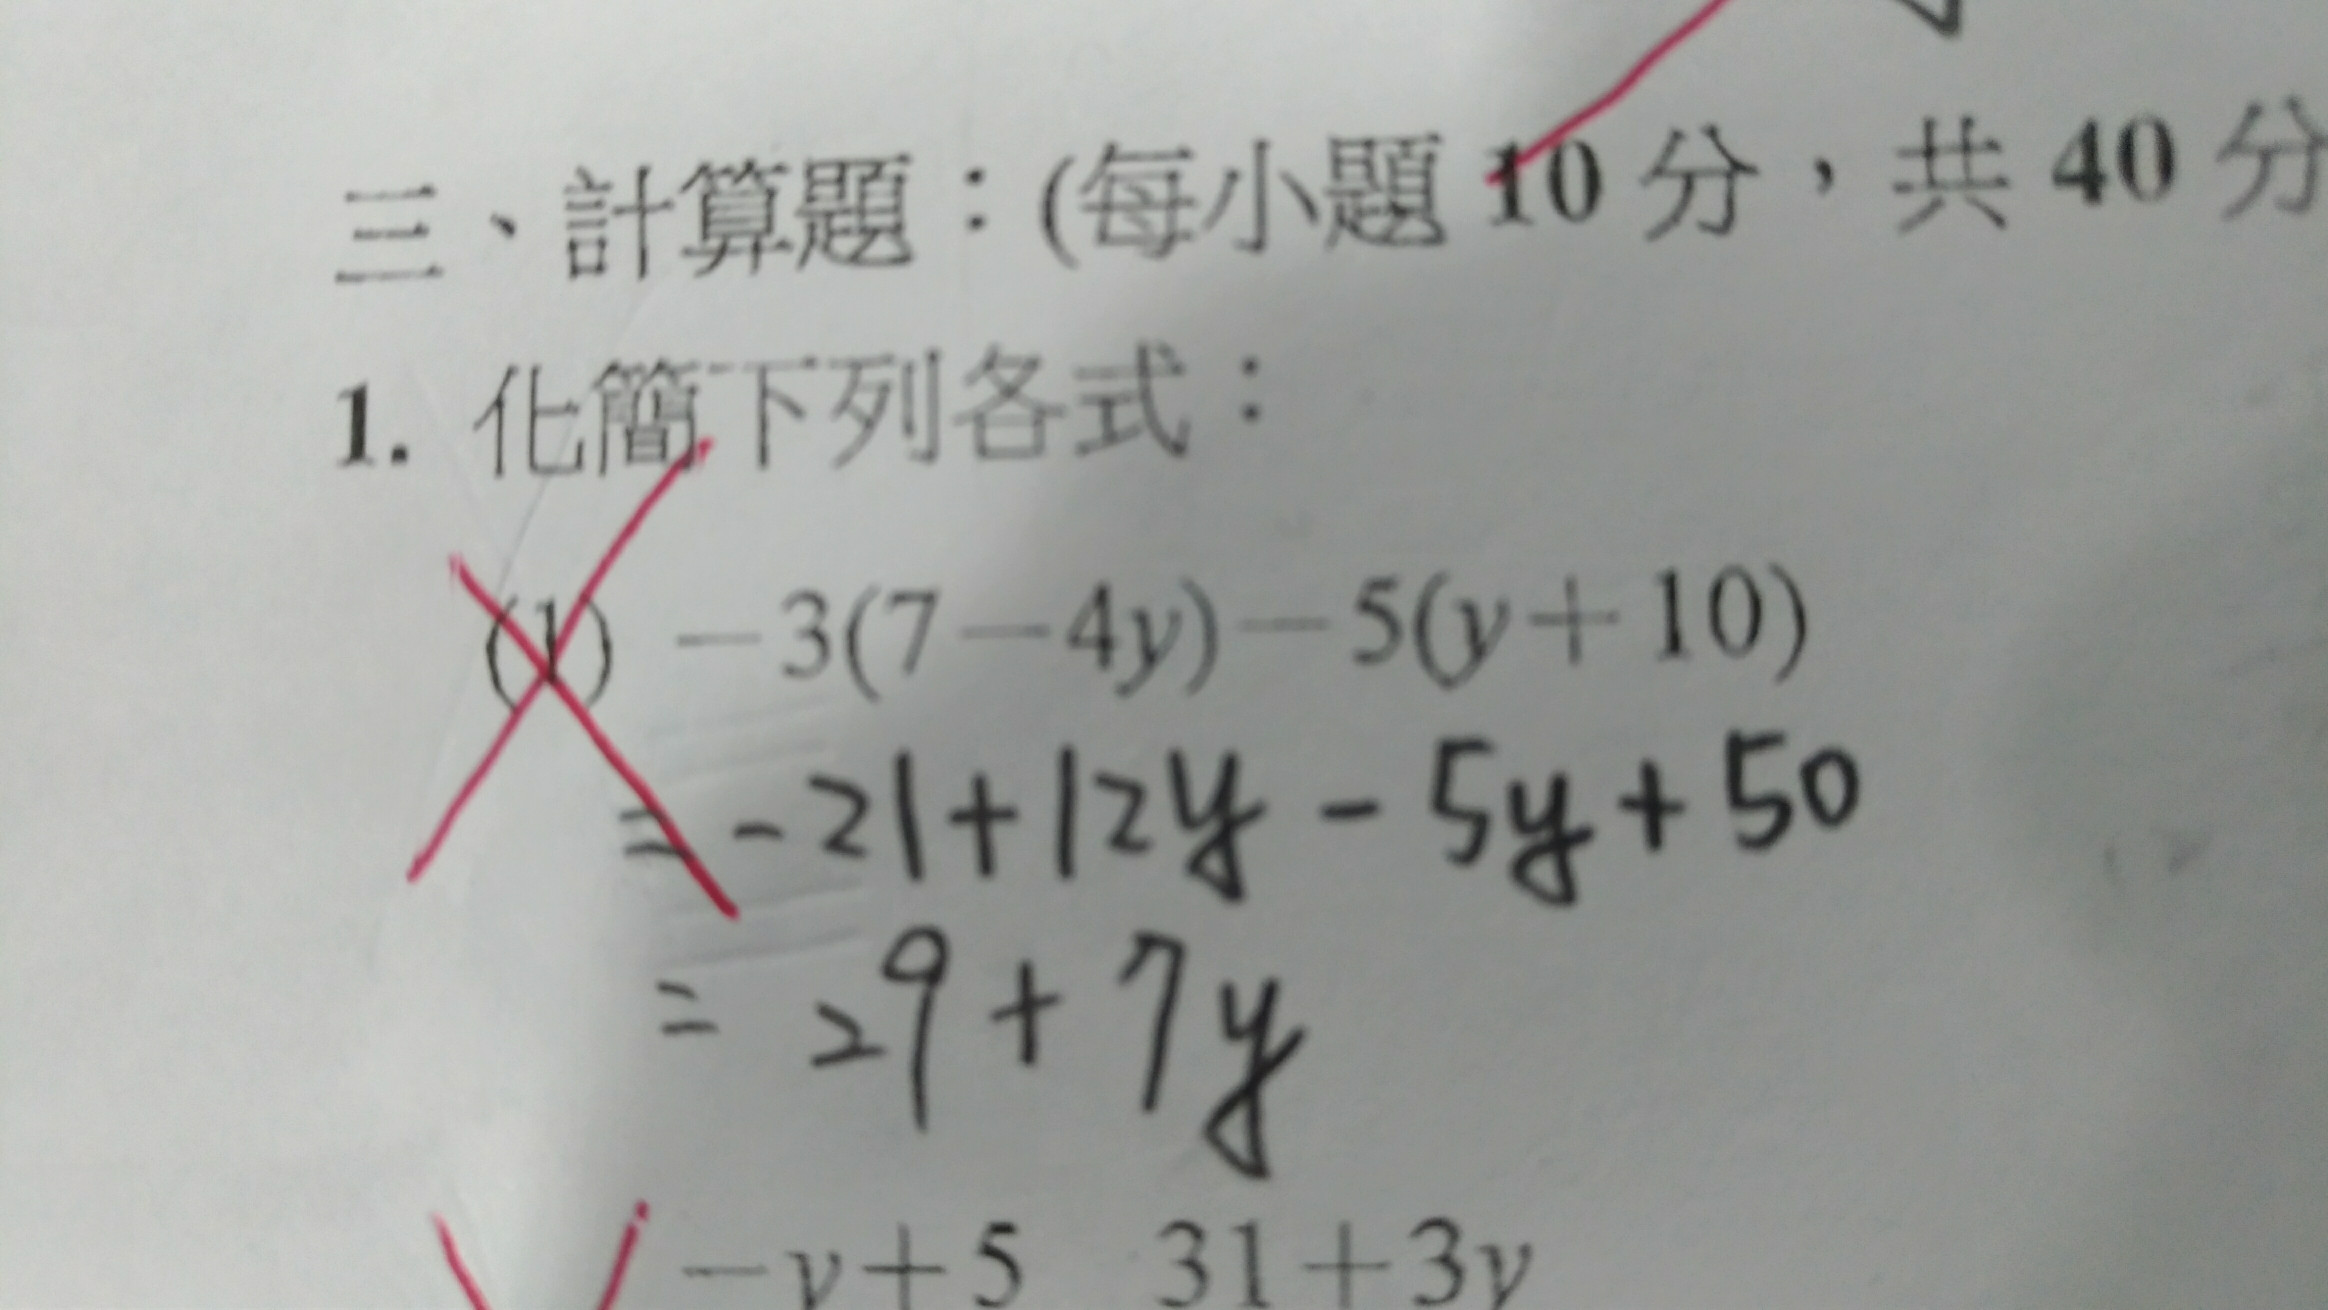 三、計算題：(每小題 10 分，共 40 分
1. 化簡下列各式：
(1) －3(7－4y)－5(y＋10)
= -21+12y - 5y+50
= 29+7y
－y＋5 31＋3y